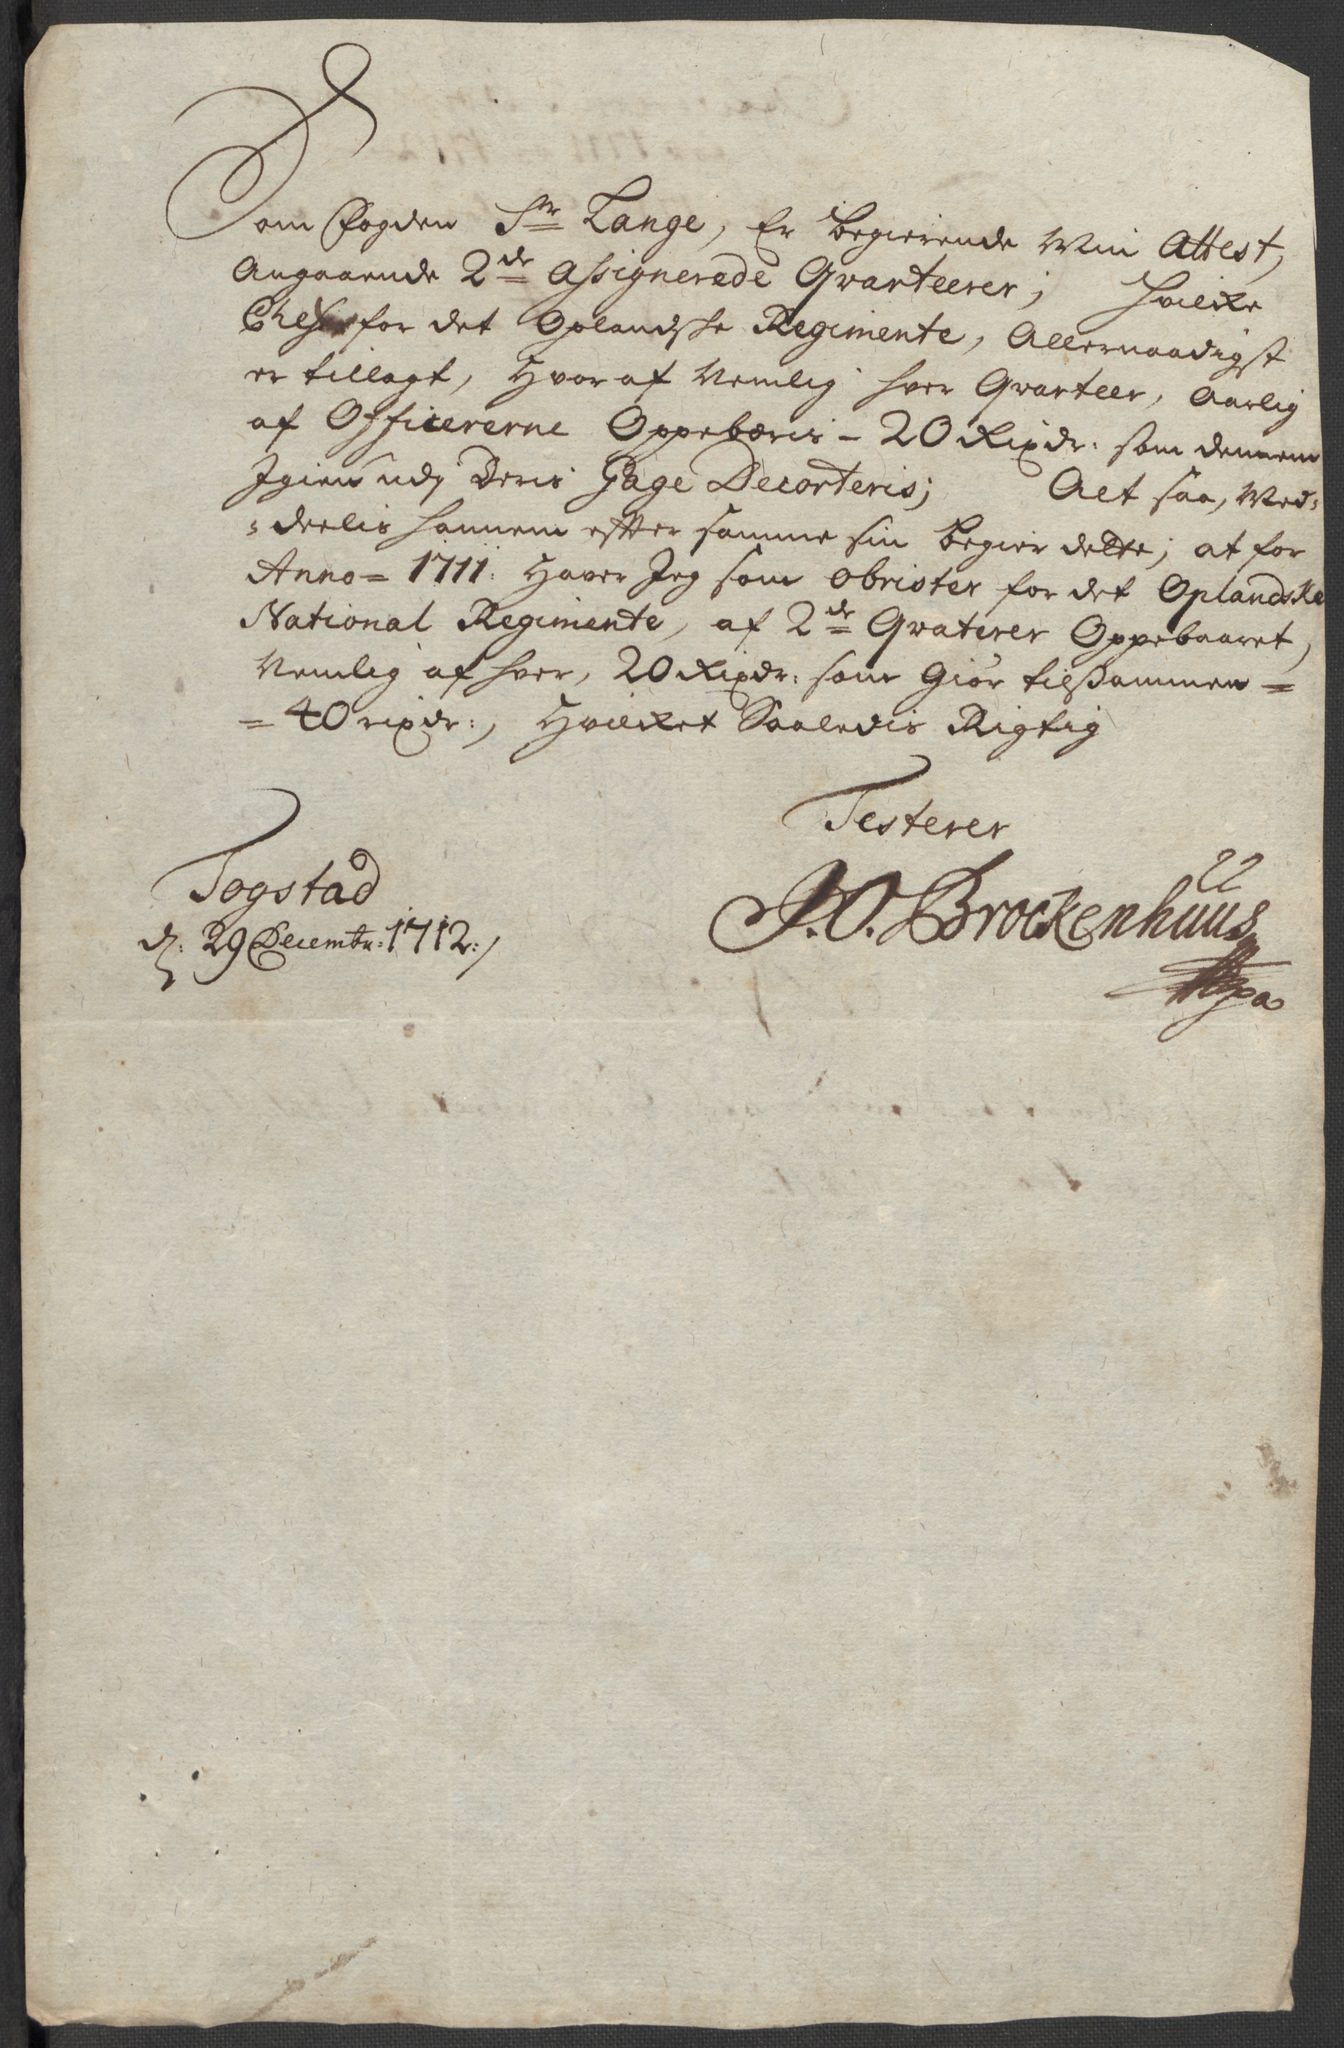 Som Fogden Sr Lange, Er begierende Min Attest,
Angaaende 2de Assignerede Qvarteerer; hvilke
Chefen for det Oplandske Regimente, Allernaadigst
er tillagt, Hvoraf Nemlig hver Qvarteer, Aarlig
af Officererne Oppebæris - 20 Rixdr: som dennem
Igien udj Deris Gage Decorteris; Alt saa, Med:
:deelis hannem effter samme sin begier dette; at for
Anno = 1711: Haver Jeg som Obrister for det Oplandske
National Regimente, af 2de Qvaterer Oppebaaret,
Nemlig af hver, 20 Rixdr: som Giør tilsammen =
= 40 rixdr:, Hvilket Saaledis Rigtig
Testerer
Togstad
d: 29 Decembr: 1712:/
J. O. Brockenhuus